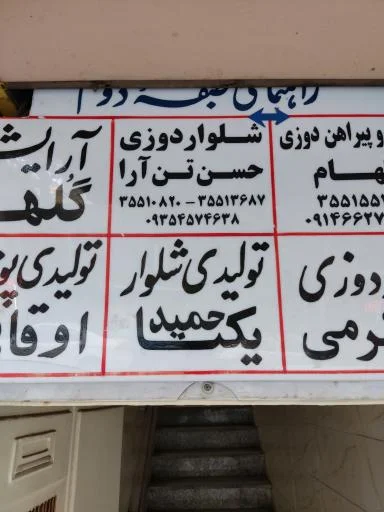 راهنمای طبقه دوم
و پیراهن دوزی
هام
شلوار دوزی
حسن تن آرا
۳۵۵۱۰۸۲۰ - ۳۵۵۱۳۶۸۷
۰۹۳۵۴۵۷۴۶۳۸
آرایش
گلها
دوزی
رمی
تولیدی شلوار
حمید یکتا
تولیدی پو
اوقا